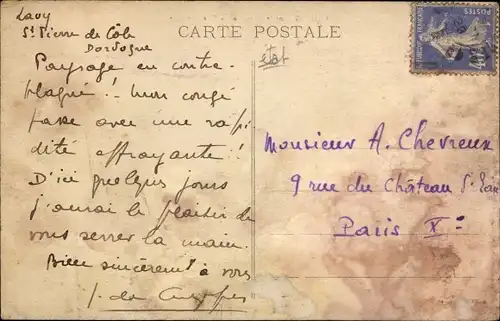 Lavy
St Pierre de Côle
Dordogne
CARTE POSTALE
POSTES
Paysage en contre
blague ! - Mon congé
passe avec une rapi
dité effroyante !
D'ici quelques jours
j'aurai le plaisir de
vous serrer la main.
Bien sincèrement à vous
J. de
Monsieur A. Chevreux
9 rue du Château
Paris Xe